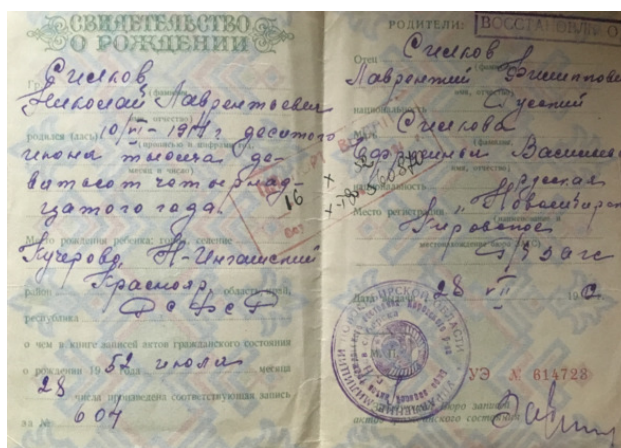 СВИДЕТЕЛЬСТВО
О РОЖДЕНИИ
Гр.
(фамилия,
Николай Лаврентьевич
имя, отчество)
родился (лась) 10/VI - 1914 г. десятого
(прописью и цифрами год,
июня тысяча де-
месяц и число)
вятсот четырнад-
цатого года.
Место рождения ребенка: город, селение
Кучерово, Н-Ингашский
район Краснояр. область, край,
республика РСФСР
о чем в книге записей актов гражданского состояния
о рождении 19 52 года июля месяца
28 числа произведена соответствующая запись
за № 604
РОДИТЕЛИ:
ВОССТАНОВЛЕНО
Отец
(фамилия,
Лаврентий Филиппович
имя, отчество)
национальность Русский
Мать
(фамилия,
Васильевна
имя, отчество)
национальность русская
Место регистрации г. Новосибирск
(наименование и
Кировское
местонахождение бюро ЗАГС)
р/бЗАГС
Дата выдачи 28 VII 19
М. П.
УЭ № 614728
бюро записей
актов гражданского состояния